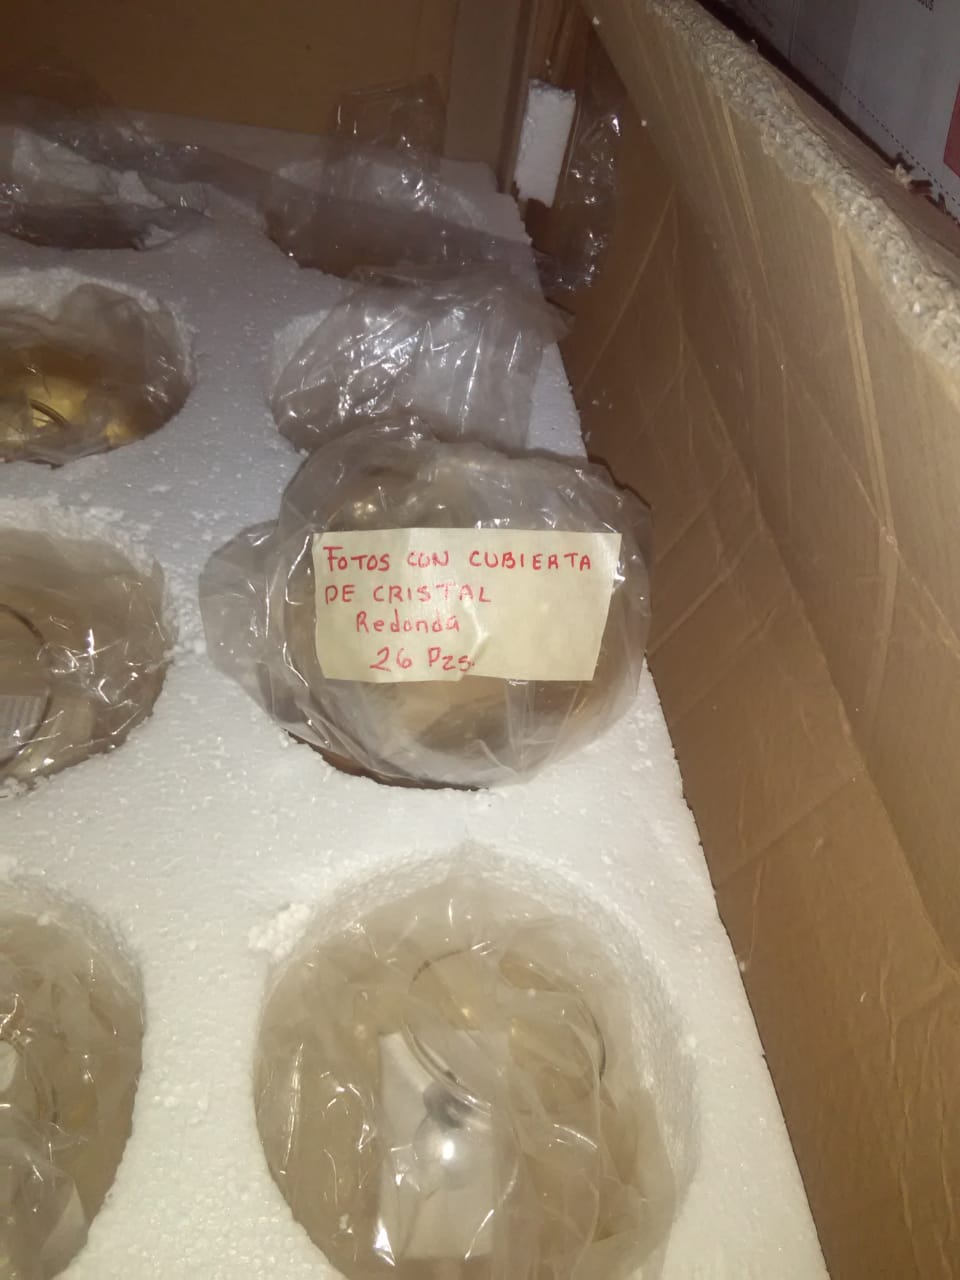 FOTOS CON CUBIERTA
DE CRISTAL
Redonda
26 Pzs.